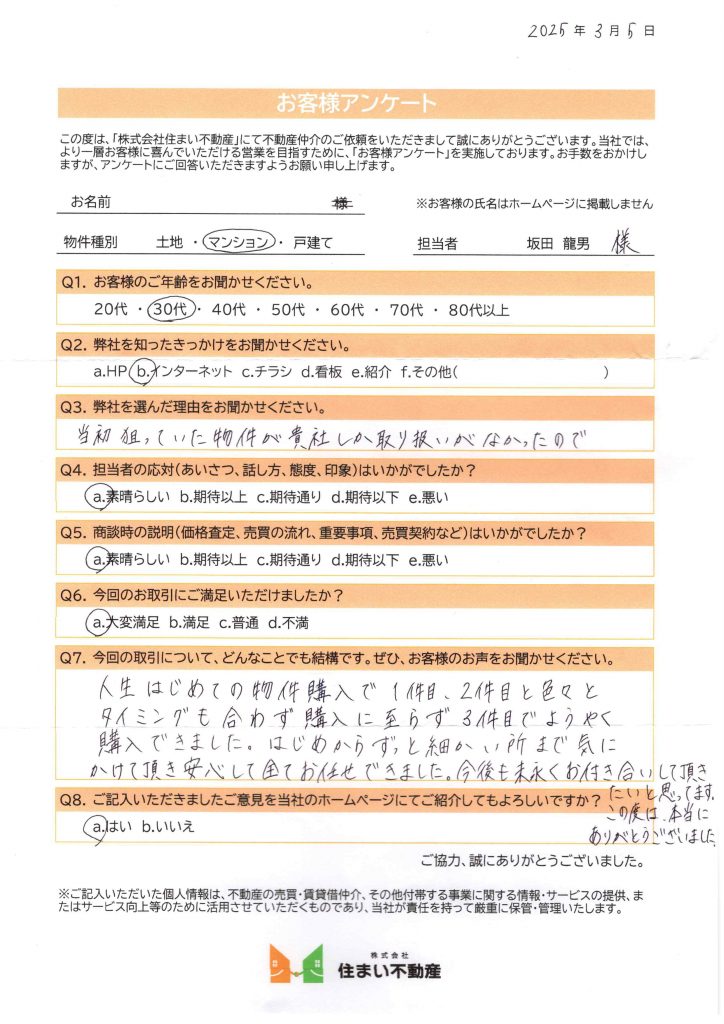 2025年3月5日
お客様アンケート
この度は、「株式会社住まい不動産」にて不動産仲介のご依頼をいただきまして誠にありがとうございます。当社では、
より一層お客様に喜んでいただける営業を目指すために、「お客様アンケート」を実施しております。お手数をおかけし
ますが、アンケートにご回答いただきますようお願い申し上げます。
お名前 様 ※お客様の氏名はホームページに掲載しません
物件種別 土地 ・ マンション ・ 戸建て 担当者 坂田 龍男 様
Q1. お客様のご年齢をお聞かせください。
20代 ・ 30代 ・ 40代 ・ 50代 ・ 60代 ・ 70代 ・ 80代以上
Q2. 弊社を知ったきっかけをお聞かせください。
a.HP b.インターネット c.チラシ d.看板 e.紹介 f.その他( )
Q3. 弊社を選んだ理由をお聞かせください。
当初狙っていた物件が貴社しか取り扱いがなかったので
Q4. 担当者の応対(あいさつ、話し方、態度、印象)はいかがでしたか?
a.素晴らしい b.期待以上 c.期待通り d.期待以下 e.悪い
Q5. 商談時の説明(価格査定、売買の流れ、重要事項、売買契約など)はいかがでしたか?
a.素晴らしい b.期待以上 c.期待通り d.期待以下 e.悪い
Q6. 今回のお取引にご満足いただけましたか?
a.大変満足 b.満足 c.普通 d.不満
Q7. 今回の取引について、どんなことでも結構です。ぜひ、お客様のお声をお聞かせください。
人生はじめての物件購入で1件目、2件目と色々と
タイミングも合わず購入に至らず3件目でようやく
購入できました。はじめからずっと細かい所まで気に
かけて頂き安心して全てお任せできました。今後も末永くお付き合いして頂き
たいと思ってます。
この度は、本当に
ありがとうございました
Q8. ご記入いただきましたご意見を当社のホームページにてご紹介してもよろしいですか?
a.はい b.いいえ
ご協力、誠にありがとうございました。
※ご記入いただいた個人情報は、不動産の売買・賃貸借仲介、その他付帯する事業に関する情報・サービスの提供、ま
たはサービス向上等のために活用させていただくものであり、当社が責任を持って厳重に保管・管理いたします。
株式会社
住まい不動産